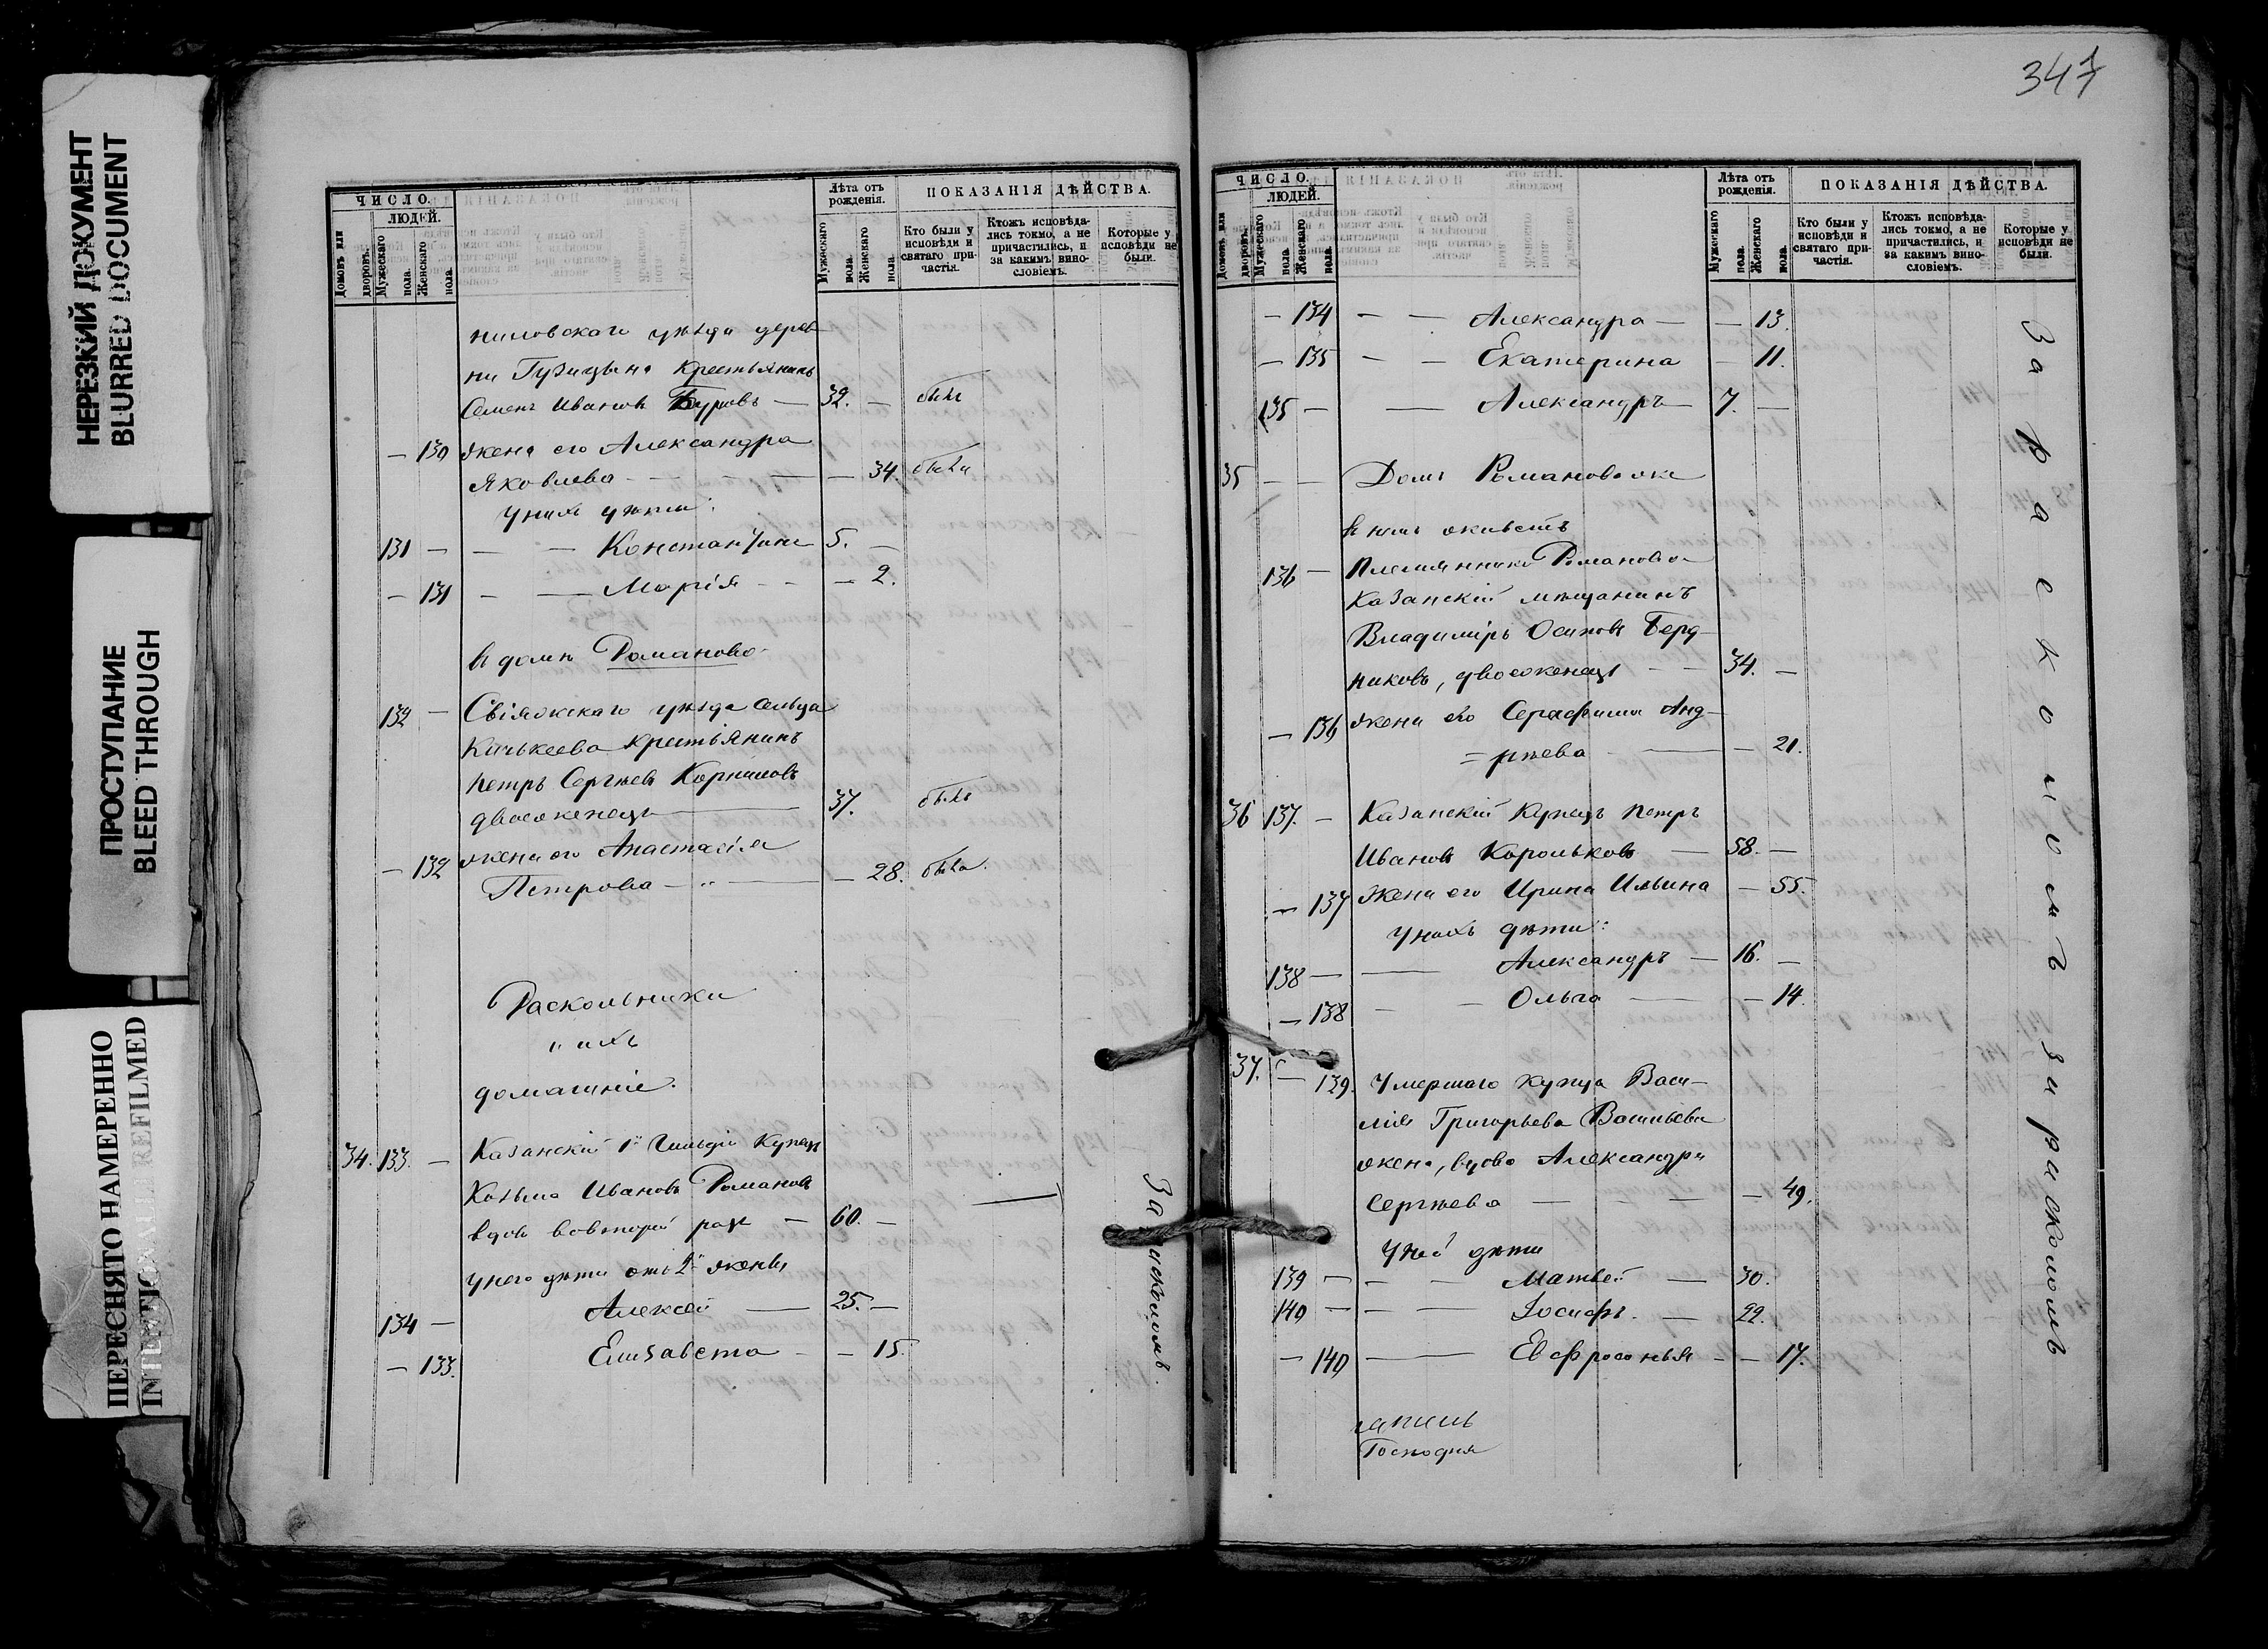 НЕРЕЗКИЙ ДОКУМЕНТ
BLURRED DOCUMENT
ПРОСТУПАНИЕ
BLEED THROUGH
ПЕРЕСНЯТО НАМЕРЕННО
INTENTIONALLY REFILMED
ЧИСЛО.
ЛЮДЕЙ.
Домовъ или дворовъ.
Мужескаго пола.
Женскаго пола.
Лѣта отъ рожденія.
Мужескаго пола.
Женскаго пола.
ПОКАЗАНІЯ ДѢЙСТВА.
Кто были у исповѣди и святаго причастія.
Ктожъ исповѣдались токмо, а не причастились, и за какимъ винословіемъ.
Которые у исповѣди не были.
уѣзда дерев
ни крестьянинъ
Семенъ Ивановъ — 32. — былъ
— 130 жена его Александра
Яковлева — — 34. была
У нихъ дѣти:
131 — — — Константинъ 5. —
— 131 — — Марія — — — 2.
в домѣ Романова
132 — Свіяжскаго уѣзда сельца
Кильдеева крестьянинъ
Петръ Сергѣевъ Корниловъ
двоеженецъ — 37. былъ
— 132 жена его Анастасія
Петрова — — 28. была.
Раскольники
и ихъ
домашніе.
34. 133. — Казанскій 1й Гильдіи Купецъ
Козьма Ивановъ Романовъ
вдовъ во второй разъ — 60. —
У него дѣти отъ 2й жены
134 — Алексѣй — 25. —
— 133. Елизавета — — 15.
За расколомъ.
347
ЧИСЛО.
ЛЮДЕЙ.
Домовъ или дворовъ.
Мужескаго пола.
Женскаго пола.
Лѣта отъ рожденія.
Мужескаго пола.
Женскаго пола.
ПОКАЗАНІЯ ДѢЙСТВА.
Кто были у исповѣди и святаго причастія.
Ктожъ исповѣдались токмо, а не причастились, и за какимъ винословіемъ.
Которые у исповѣди не были.
— 134 — — Александра — — 13.
— 135 — — Екатерина — 11.
135 — — Александръ — 7. —
35 — — Домъ Романова же
в немъ живетъ
136 — Племянникъ Романова
Казанскій мѣщанинъ
Владиміръ Осиповъ Берд-
никовъ, двоеженецъ — — 34. —
— 136 жена его Серафима Анд-
= рѣева — — 21.
36 137. — Казанскій Купецъ Петръ
Ивановъ Корольковъ — 58. —
— 137 Жена его Ирина Ильина — 55.
У нихъ дѣти:
138 — — Александръ — 16. —
— 138 — — Ольга — — 14.
37. — 139. Умершаго купца Васи-
лія Григорьева Васильева
жена, вдова Александра
Сергѣева — — — — 49.
У ней дѣти
139 — — — Матвей — 30.
140 — — — Іосифъ. — 22.
— 140 — Евфросинья — — 17.
Господня
За расколомъ
За расколомъ